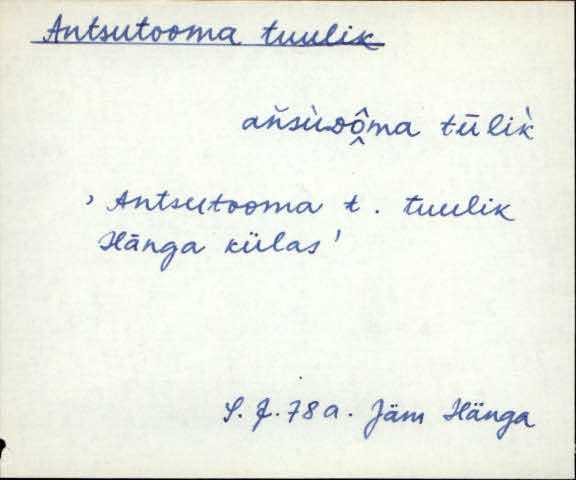 Antsutooma tuulik
ańsùᴅô̭ma tūlik̀
' Antsutooma t. tuulik
Hänga külas'
S. J. 78 a. Jäm Hänga